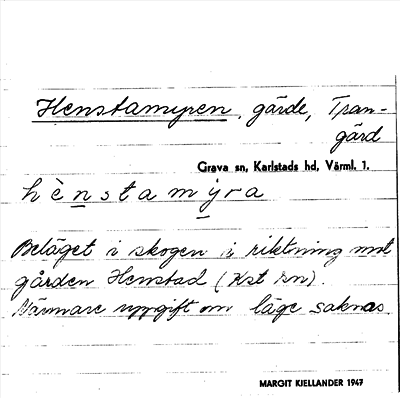 Henstamyren, gärde, Tran-
gärd
Grava sn, Karlstads hd, Värml. 1.
hènstamýra
Beläget i skogen i riktning mot
gården Henstad (Kst sn).
Närmare uppgift om läge saknas.
MARGIT KIELLANDER 1947